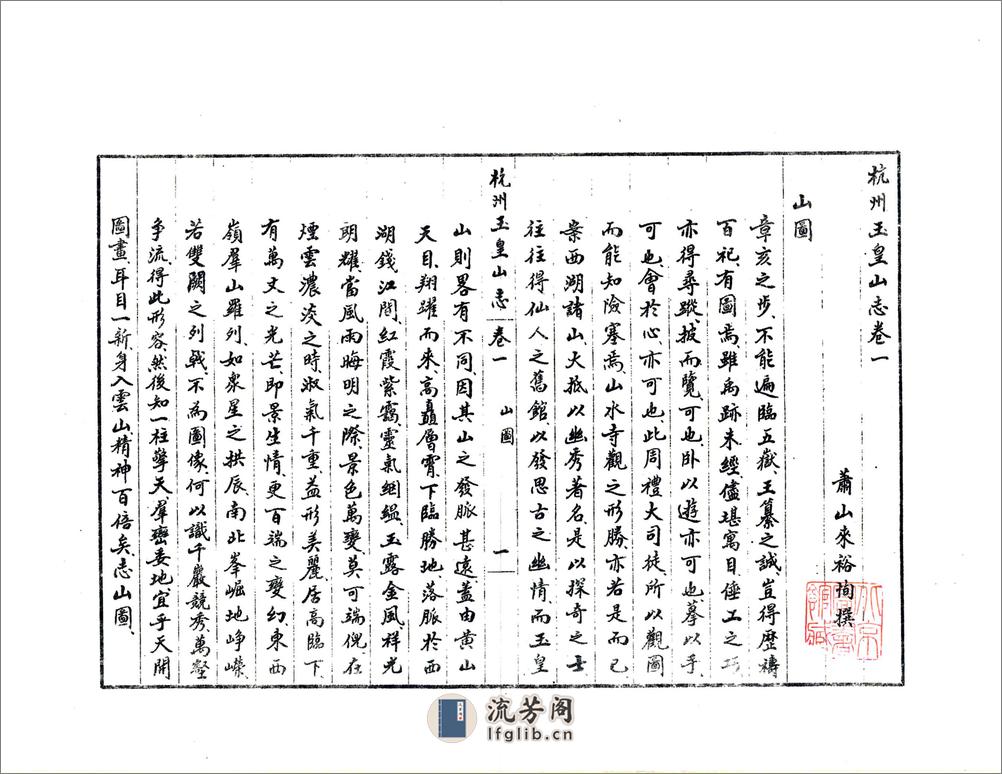 杭州玉皇山志卷一
蕭山來裕恂撰
山圖
章亥之步、不能遍臨五嶽、王纂之誠、豈得歷禱
百祀、有圖焉、雖禹跡未經、儘堪寓目、倕工之巧
亦得尋蹤、披而覽、可也、臥以遊、亦可也、摹以手、
可也、會於心、亦可也、此周禮大司徒所以觀圖
而能知險塞焉、山水寺觀之形勝、亦若是而已
案西湖諸山、大抵以幽秀著名、是以探奇之士
往往得仙人之舊館、以發思古之幽情、而玉皇
杭州玉皇山志 卷一 山圖 一
山則畧有不同、因其山之發脈甚遠、蓋由黃山
天目、翔躍而來、高矗層霄、下臨勝地、落脈於西
湖錢江間、紅霞紫靄、靈氣絪縕、玉露金風、祥光
朗耀、當風雨晦明之際、景色萬變、莫可端倪、在
煙雲濃淡之時、淑氣千重、益形美麗、居高臨下
有萬丈之光芒、即景生情、更百端之變幻、東西
嶺羣山羅列、如衆星之拱辰、南北峯崛地崢嶸
若雙闕之列戟、不為圖像、何以識千巖競秀、萬壑
爭流、得此形容、然後知一柱擎天、羣巒委地、宜乎天開
圖畫、耳目一新、身入雲山、精神百倍矣、志山圖、
流芳阁
lfglib.cn